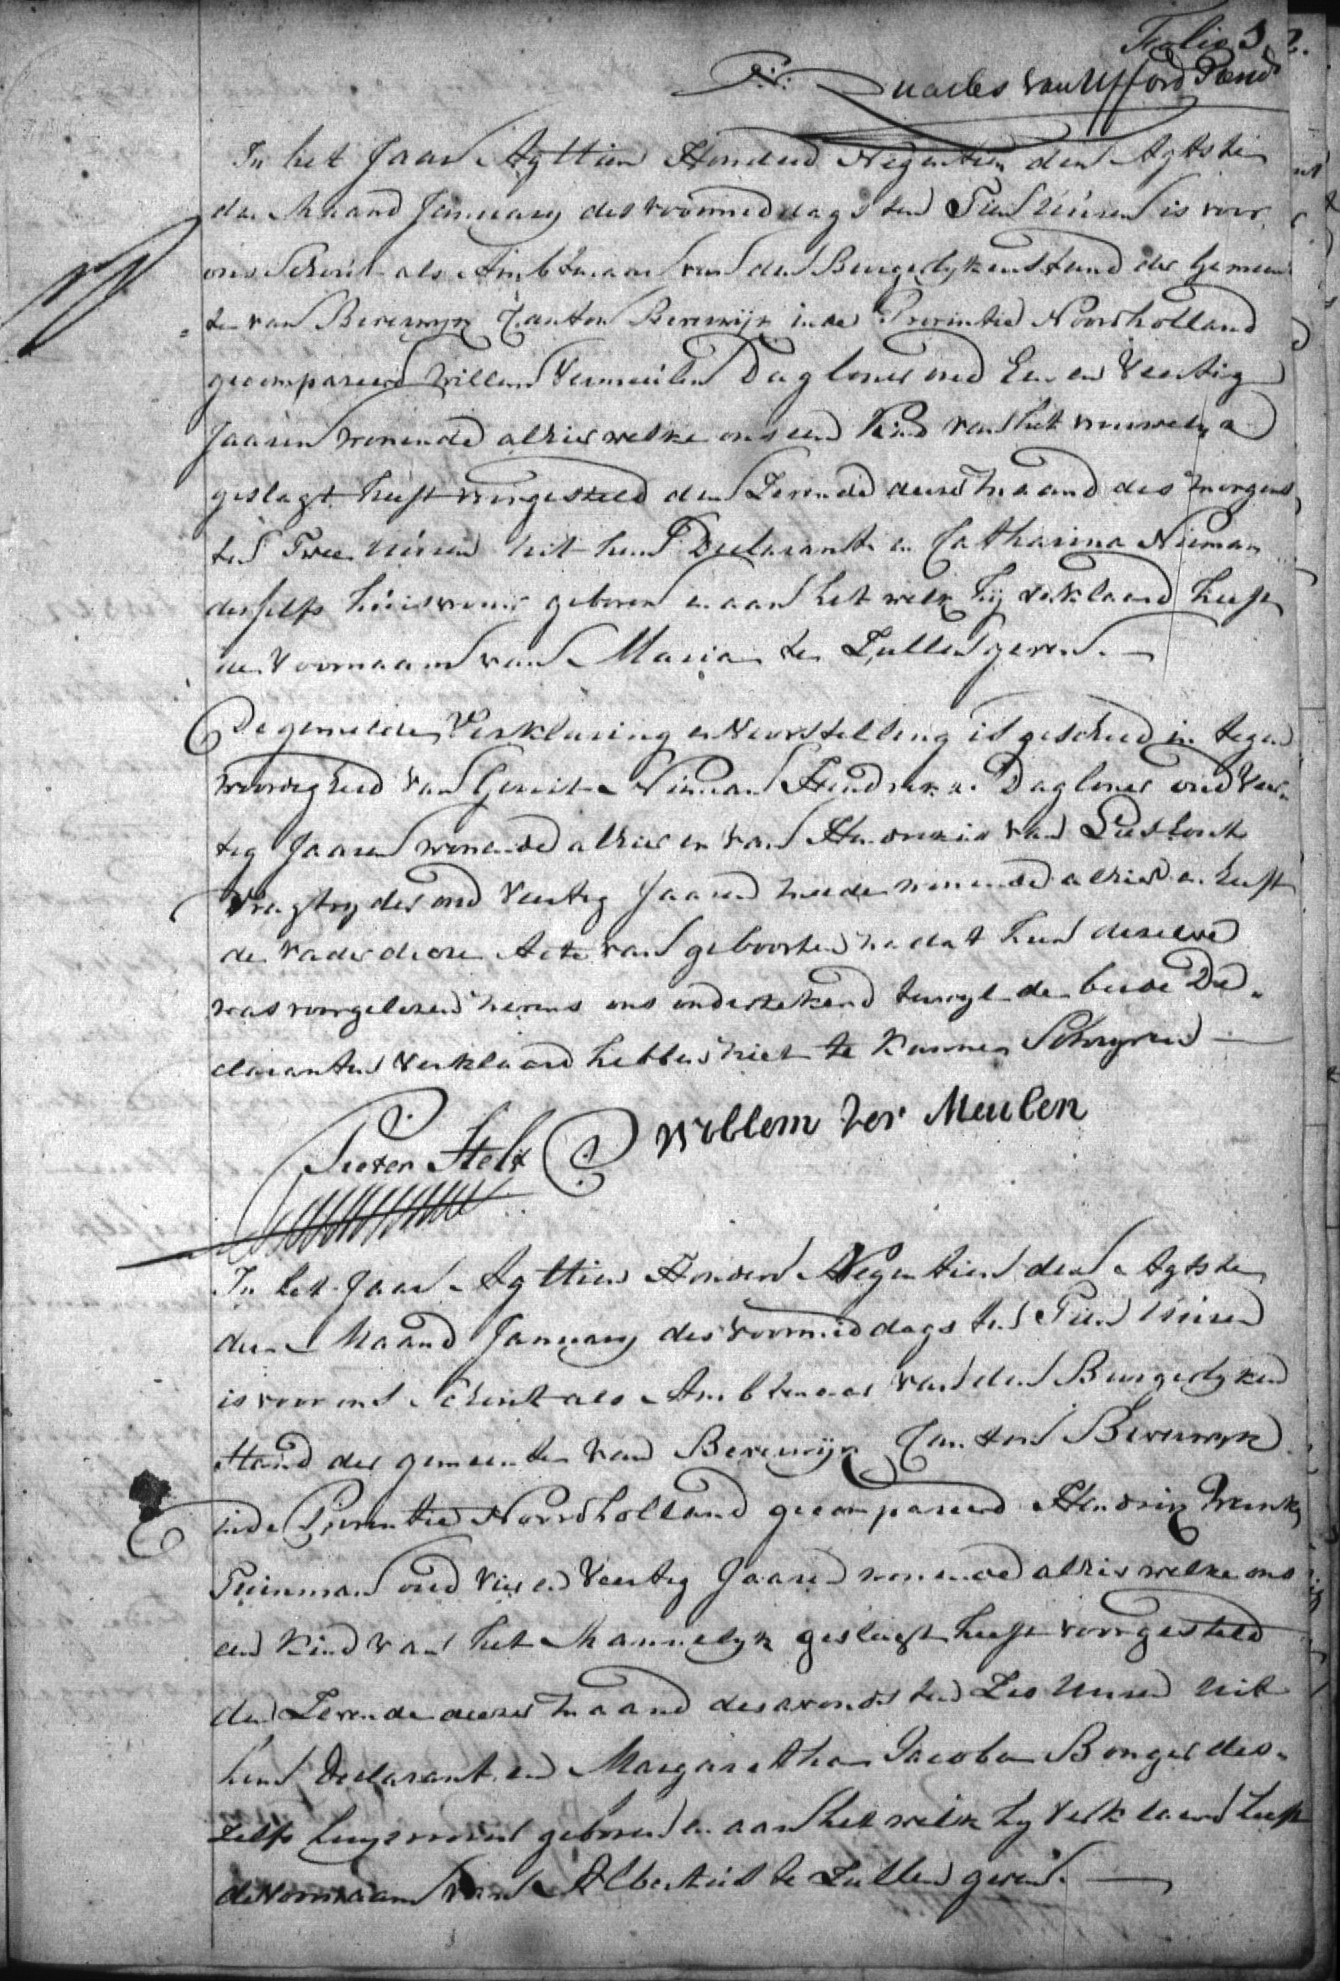 Folio 3
Quarles van Ufford
In het Jaar Agttien Honderd Negentien den Agtste
der Maand January des voormiddags ten Tien Uuren is voor
ons Schout als Ambtenaar van den Burgerlyken Stand der Gemeen
te van Beverwyk Canton Beverwijk in de Provintie Noordholland
gecompareerd Willem Vermeulen Dagloner oud Een en Veertig
Jaaren wonende alhier welke ons een Kind van het vrouwelyk
geslagt heeft voorgesteld den Zevende deezer maand des morgens
ten Twee uuren uit hem Declarant en Catharina Nieman
deszelfs huisvrouw geboren en aan het welk hij verklaard heeft
de Voornaam van Maria te Zullen geven.
De gemelde Verklaring en Voorstelling is geschied in tegen
woordigheid van Gerrit Nieman Hendrikz Dagloner oud Veer
tig Jaaren wonende alhier en van Hendrik van
Vragtryder oud Veertig Jaaren mede wonende alhier en heeft
de vader deze Acte van geboorten na dat hem dezelve
was voorgelezen nevens ons onderteekend terwyl de beide De
claranten Verklaard hebben niet te kunnen Schryven
Pieter Stelt Willem ver Meulen
In het Jaar Agttien Honderd Negentien den Agtste
der Maand January des voormiddags ten Tien Uuren
is voor ons Schout als Ambtenaar van den Burgerlyken
Stand der gemeenten van Beverwijk Canton Beverwyk
in de Provintie Noordholland gecompareerd Hendrik
Tuinman oud Vier en Veertig Jaaren wonende alhier welke ons
een Kind van het Mannelyk geslagt heeft voorgesteld
den Zevende deezer maand des avonds ten Zes Uuren uit
hem Declarant en Margaretha Jacoba Bonger des
zelfs huysvrouw geboren en aan het welk hy Verklaard heeft
de Voornaam van Albertus te Zullen geven.